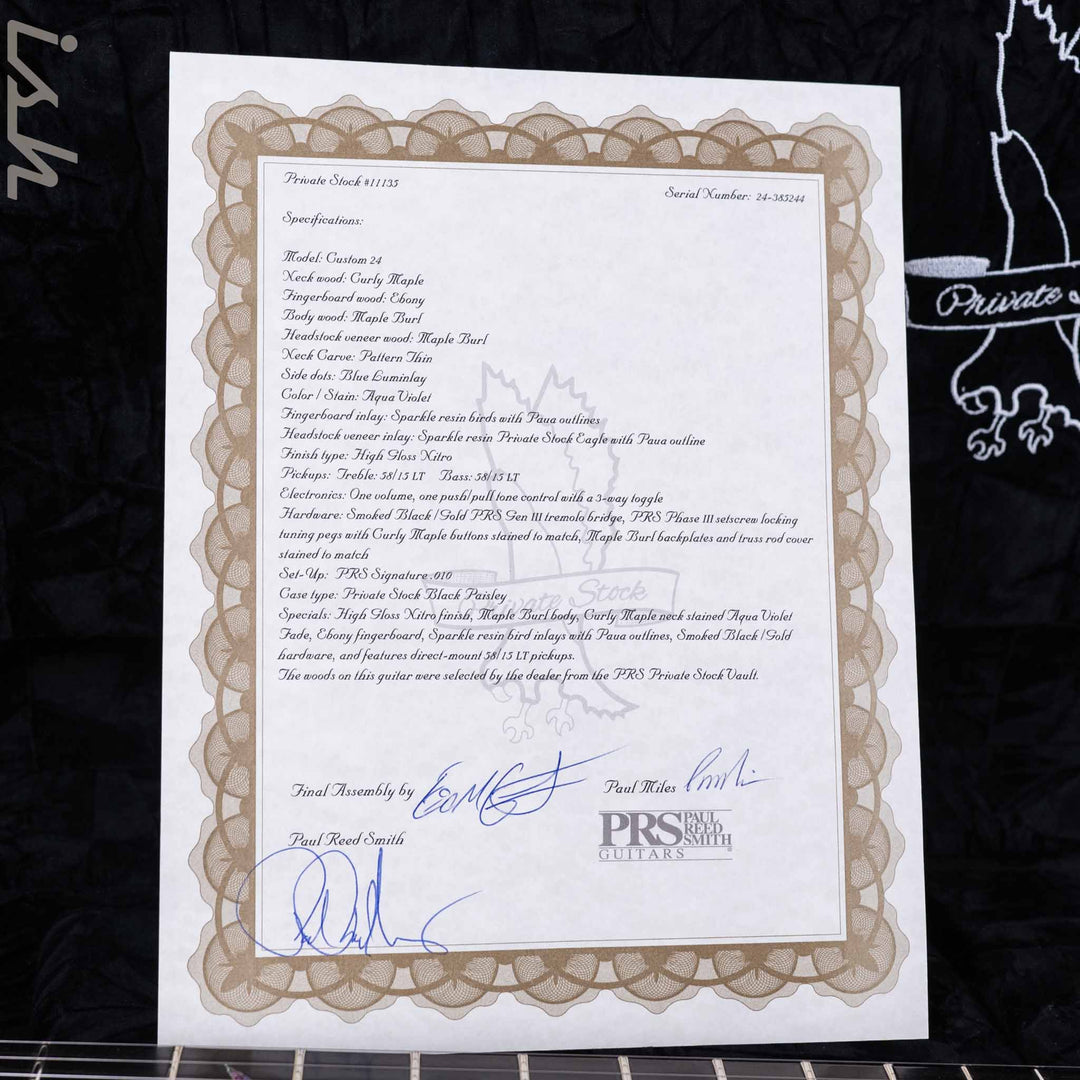 ish
Private Stock #11135
Serial Number: 24-385244
Specifications:
Model: Custom 24
Neck wood: Curly Maple
Fingerboard wood: Ebony
Body wood: Maple Burl
Headstock veneer wood: Maple Burl
Neck Carve: Pattern Thin
Side dots: Blue Luminlay
Color / Stain: Aqua Violet
Fingerboard inlay: Sparkle resin birds with Paua outlines
Headstock veneer inlay: Sparkle resin Private Stock Eagle with Paua outline
Finish type: High Gloss Nitro
Pickups: Treble: 58/15 LT Bass: 58/15 LT
Electronics: One volume, one push/pull tone control with a 3-way toggle
Hardware: Smoked Black / Gold PRS Gen III tremolo bridge, PRS Phase III setscrew locking
tuning pegs with Curly Maple buttons stained to match, Maple Burl backplates and truss rod cover
stained to match
Set-Up: PRS Signature .010
Case type: Private Stock Black Paisley
Specials: High Gloss Nitro finish, Maple Burl body, Curly Maple neck stained Aqua Violet
Fade, Ebony fingerboard, Sparkle resin bird inlays with Paua outlines, Smoked Black / Gold
hardware, and features direct-mount 58/15 LT pickups.
The woods on this guitar were selected by the dealer from the PRS Private Stock Vault.
Private Stock
Final Assembly by
Paul Miles
Paul Reed Smith
PRS PAUL REED SMITH
GUITARS
Private